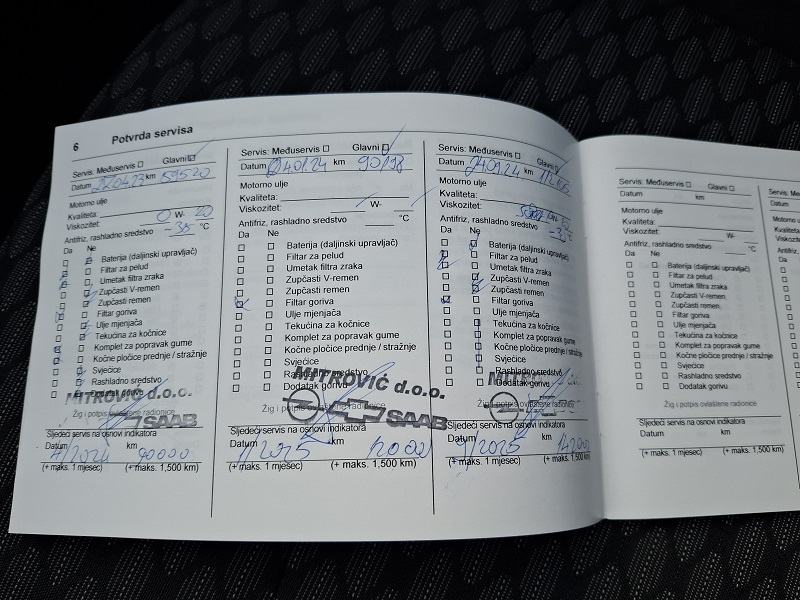 6 Potvrda servisa
Servis: Međuservis Glavni
Datum 22.04.23 km 59520
Motorno ulje
Kvaliteta:
Viskozitet: 0 W- 20
Antifriz, rashladno sredstvo -35 °C
Da Ne
Baterija (daljinski upravljač)
Filtar za pelud
Umetak filtra zraka
Zupčasti V-remen
Zupčasti remen
Filtar goriva
Ulje mjenjača
Tekućina za kočnice
Komplet za popravak gume
Kočne pločice prednje / stražnje
Svjećice
Rashladno sredstvo
Dodatak gorivu
MITROVIĆ d.o.o.
SAAB
Žig i potpis ovlaštene radionice
Sljedeći servis na osnovi indikatora
Datum km
4/2024 90000
(+ maks. 1 mjesec) (+ maks. 1,500 km)
Servis: Međuservis Glavni
Datum 24.01.24 km 90198
Motorno ulje
Kvaliteta:
Viskozitet: W-
Antifriz, rashladno sredstvo °C
Da Ne
Baterija (daljinski upravljač)
Filtar za pelud
Umetak filtra zraka
Zupčasti V-remen
Zupčasti remen
Filtar goriva
Ulje mjenjača
Tekućina za kočnice
Komplet za popravak gume
Kočne pločice prednje / stražnje
Svjećice
Rashladno sredstvo
Dodatak gorivu
MITROVIĆ d.o.o.
Žig i potpis ovlaštene radionice
SAAB
Sljedeći servis na osnovi indikatora
Datum 1/2025 km 12000
(+ maks. 1 mjesec) (+ maks. 1,500 km)
Servis: Međuservis Glavni
Datum 24.09.24 km
Motorno ulje
Kvaliteta:
Viskozitet:
Antifriz, rashladno sredstvo
Da Ne
Baterija (daljinski upravljač)
Filtar za pelud
Umetak filtra zraka
Zupčasti V-remen
Zupčasti remen
Filtar goriva
Ulje mjenjača
Tekućina za kočnice
Komplet za popravak gume
Kočne pločice prednje / stražnje
Svjećice
Rashladno sredstvo
Dodatak gorivu
MITROVIĆ
Žig i potpis ovlaštene radionice
Sljedeći servis na osnovi indikatora
Datum 9/2025 km
(+ maks. 1 mjesec) (+ maks. 1,500 km)
Servis: Međuservis Glavni
Datum km
Motorno ulje
Kvaliteta:
Viskozitet: W-
Antifriz, rashladno sredstvo °C
Da Ne
Baterija (daljinski upravljač)
Filtar za pelud
Umetak filtra zraka
Zupčasti V-remen
Zupčasti remen
Filtar goriva
Ulje mjenjača
Tekućina za kočnice
Komplet za popravak gume
Kočne pločice prednje / stražnje
Svjećice
Rashladno sredstvo
Dodatak gorivu
Žig i potpis ovlaštene radionice
Sljedeći servis na osnovi indikatora
Datum km
(+ maks. 1 mjesec) (+ maks. 1,500 km)